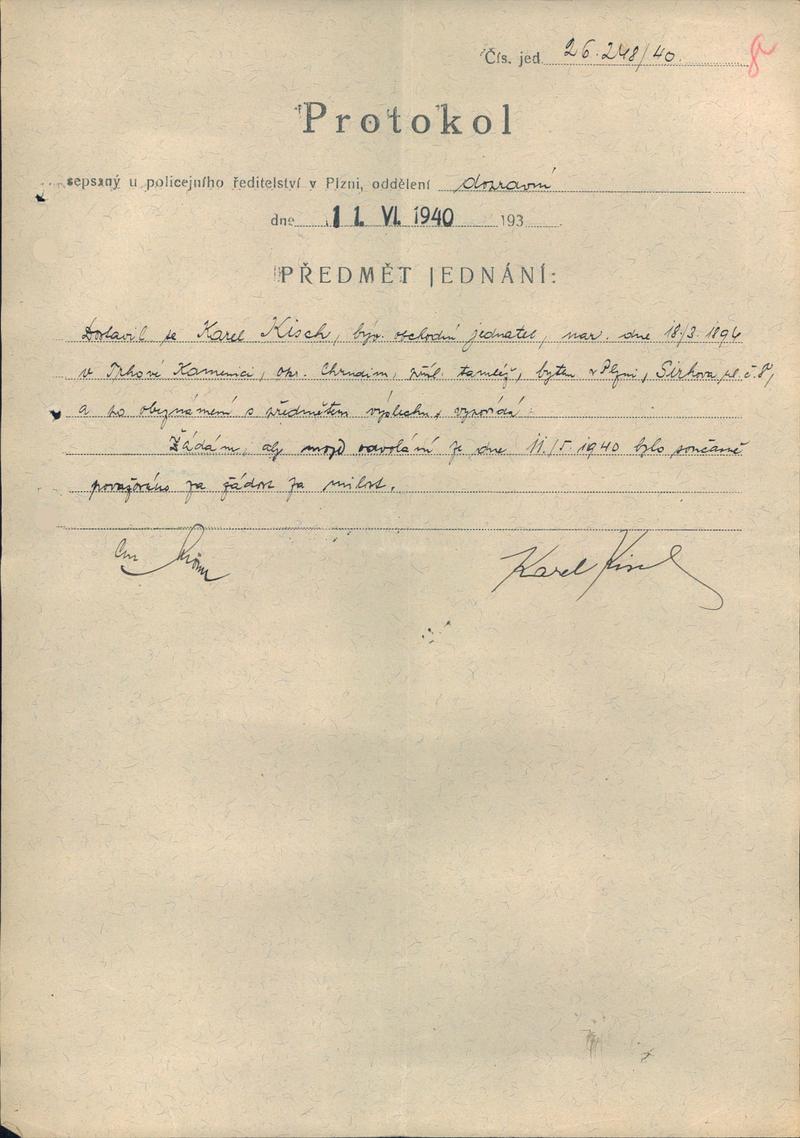 Čís. jed. 26.248/40.
Protokol
sepsaný u policejního ředitelství v Plzni, oddělení dopravní
dne 11. VI. 1940 193
PŘEDMĚT JEDNÁNÍ:
Dostavil se Karel Kisch, býv. obchodní jednatel, nar. dne 18./3. 1894
v Trhové Kamenici, okr. Chrudim, přísl. tamtéž, bytem v Plzni, Sirkova ul. č. 8,
a po obeznámení s předmětem výslechu vypovídá:
Žádám, aby moje odvolání ze dne 11./5. 1940 bylo současně
považováno za žádost za milost.
Karel Kisch